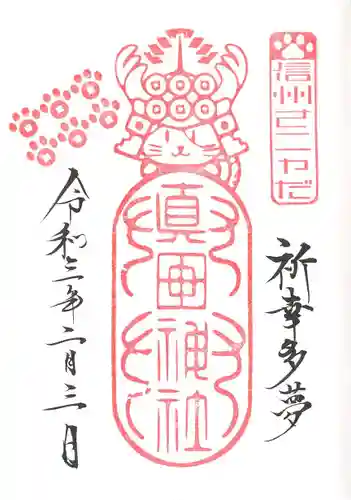 信州さなだ
祈幸多夢
眞田神社
令和三年二月三日